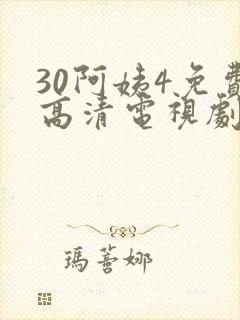 30阿姨4免費
高清電視劇
瑪薈娜